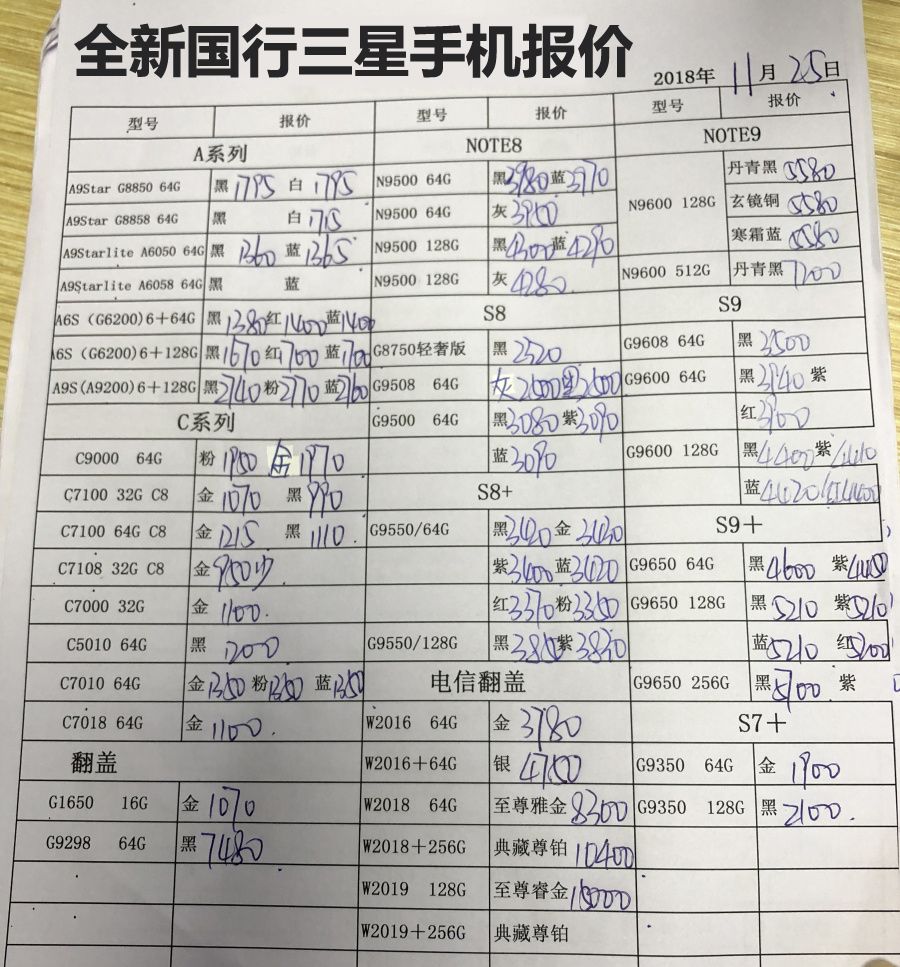 全新国行三星手机报价
2018年 11月 25日
型号 报价 型号 报价 型号 报价
A系列
A9Star G8850 64G 黑 1795 白 1795
A9Star G8858 64G 黑 白 1715
A9Starlite A6050 64G 黑 1360 蓝 1365
A9Starlite A6058 64G 黑 蓝
A6S (G6200)6+64G 黑 1380 红 1400 蓝 1400
A6S (G6200)6+128G 黑 1670 红 1700 蓝 1700
A9S(A9200)6+128G 黑 2740 粉 2770 蓝 2760
C系列
C9000 64G 粉 1950 金 1970
C7100 32G C8 金 1070 黑 990
C7100 64G C8 金 1215 黑 1110.
C7108 32G C8 金 950
C7000 32G 金 1100.
C5010 64G 黑 1200
C7010 64G 金 1350 粉 1350 蓝 1350
C7018 64G 金 1100.
翻盖
G1650 16G 金 1070
G9298 64G 黑 7480
NOTE8
N9500 64G 黑 3980 蓝 3970
N9500 64G 灰 3950
N9500 128G 黑 4300 蓝 4290
N9500 128G 灰 4280.
S8
G8750轻奢版 黑 2520
G9508 64G 灰 2600 黑 2600
G9500 64G 黑 3080 紫 3090
蓝 3090
S8+
G9550/64G 黑 3420 金 3430
紫 3400 蓝 3420
红 3370 粉 3350
G9550/128G 黑 紫
电信翻盖
W2016 64G 金 3780
W2016+64G 银 4750
W2018 64G 至尊雅金 8300
W2018+256G 典藏尊铂 10400
W2019 128G 至尊睿金
W2019+256G 典藏尊铂
NOTE9
N9600 128G 丹青黑 5580
玄镜铜 5580
寒霜蓝 5580
N9600 512G 丹青黑 7200
S9
G9608 64G 黑 3500
G9600 64G 黑 紫
红 3900
G9600 128G 黑 4400 紫
蓝 4420 红 4400
S9+
G9650 64G 黑 4600 紫
G9650 128G 黑 5210 紫 5210
蓝 5210 红 5200
G9650 256G 黑 5700 紫
S7+
G9350 64G 金 1900
G9350 128G 黑 2100.